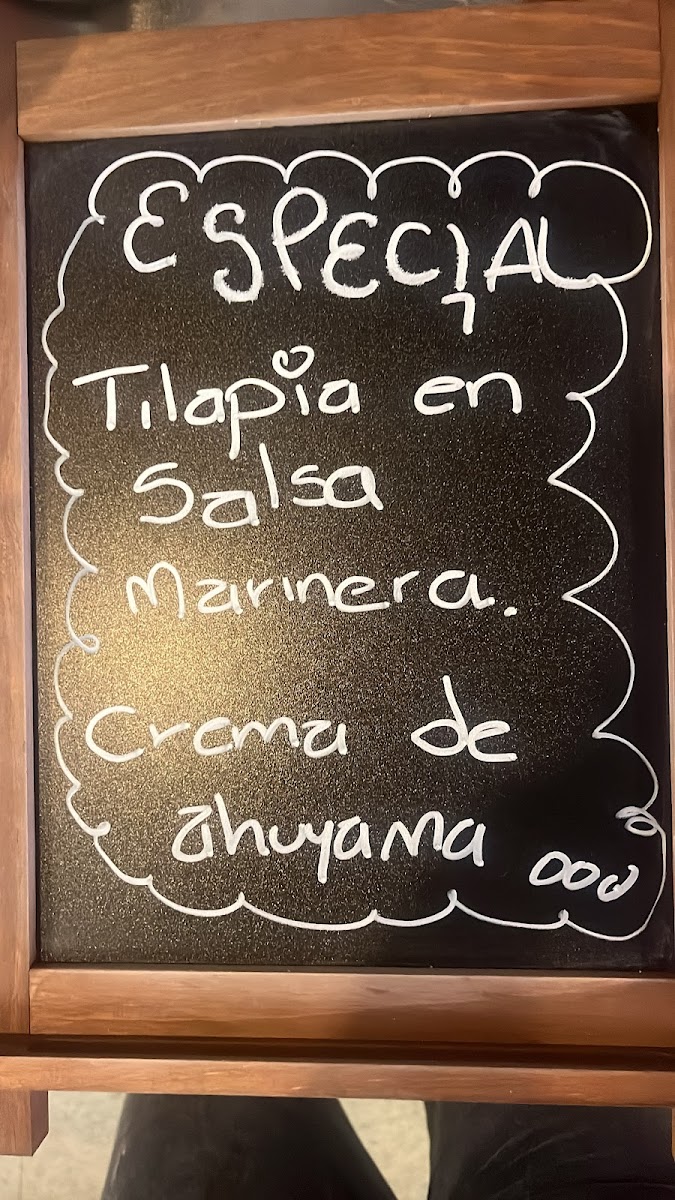 ESPECIAL
Tilapia en
Salsa
Marinera.
Crema de
ahuyama ooo